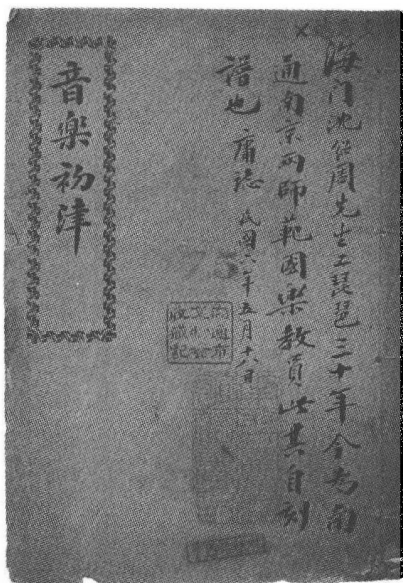 海门沈肇周先生工琵琶三十年今为南
通南京两师范国乐教员此其自刻
谱也 庸志 民国六年五月十六日
音樂初津
南通市
文化馆
收藏記